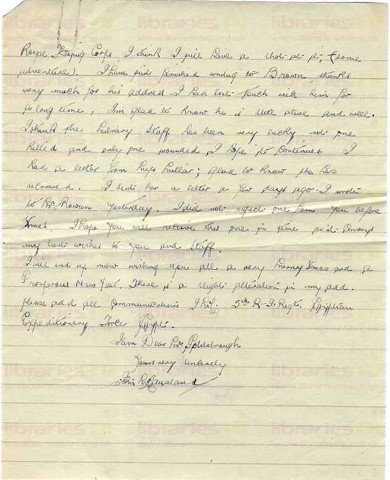 Royal Flying Corps I think I will have a shot at it, (some
adventure). I have just finished writing to Brown thanks
very much for his address I had lost touch with him for
so long time, Im glad to know he is still alive and well.
I think the Library Staff has been very lucky not one
killed and only one wounded I hope it continues I
had a letter from Miss ; glad to know she has
recovered. I wrote her a letter a few days ago I wrote
to Mr yesterday. I did not expect one from you before
Xmas. I hope you will receive this one in time and it
my best wishes to you and Staff.
I will end up now wishing you all a very merry Xmas and a
Prosperous New Year. There is a slight alteration in my add.
please add all communications 5th R. I. Regt. Egyptian
Expeditionary Force Egypt.
I am Dear Mr Goldsbrough
Yours very sincerely
libraries